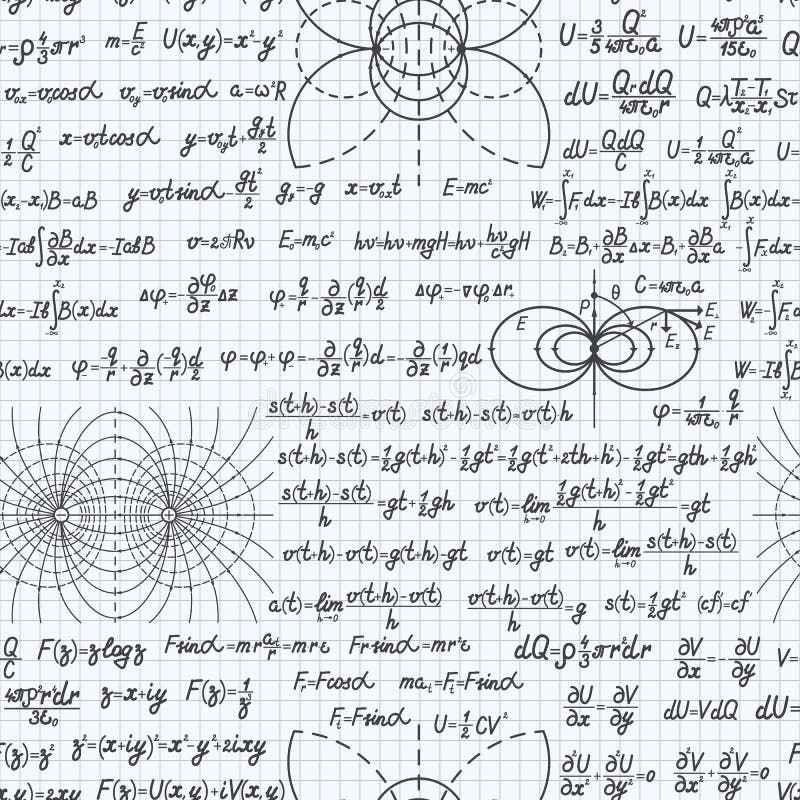 r=ρ 4/3 πr³   m=E/c²   U(x,y)=x²-y²   U=3/5 Q²/4πε₀a   U=4πρ²a⁵/15ε₀   Q
v₀ₓ=v₀cosα   v₀ᵧ=v₀sinα   a=ω²R   dU=QᵣdQ/4πε₀r   Q=λ T₂-T₁/x₂-x₁ Sτ
1/2 Q²/C   x=v₀tcosα   y=v₀ᵧt+gᵧt/2   dU=QdQ/C   U=1/2 Q²/4πε₀a   U=
(x₂-x₁)B=aB   y=v₀tsinα-gt²/2   gᵧ=-g   x=v₀ₓt   E=mc²   W₁=-∫F₁dx=-Ib∫B(x)dx   ∫B(x)dx=
-Iab∫∂B/∂x dx=-IabB   v=2πRν   E₀=m₀c²   hν'=hν+mgH=hν+hν/c² gH   B₂=B₁+∂B/∂x Δx=B₁+∂B/∂x a   -∫Fₓdx=
dx=-Ib∫B(x)dx   Δφ₊=-∂φ₀/∂z Δz   φ₊=q/r-∂/∂z(q/r)d/2   Δφ₊=-∇φ₀Δr₊   C=4πε₀a   W₂=-∫F₂d
E   ρ   θ   r   E₁   E₂   E
B(x)dx   φ=-q/r+∂/∂z(-q/r)d/2   φ=φ₊+φ₋=-∂/∂z(q/r)d=-∂/∂z(1/r)qd   W=-Ib∫B
φ=1/4πε₀·q/r
s(t+h)-s(t)/h≈v(t)   s(t+h)-s(t)≈v(t)·h
s(t+h)-s(t)=1/2g(t+h)²-1/2gt²=1/2g(t²+2th+h²)-1/2gt²=gth+1/2gh²
s(t+h)-s(t)/h=gt+1/2gh   v(t)=lim h→0 1/2g(t+h)²-1/2gt²/h=gt
v(t+h)-v(t)=g(t+h)-gt   v(t)=gt   v(t)=lim h→0 s(t+h)-s(t)/h
a(t)=lim h→0 v(t+h)-v(t)/h   v(t+h)-v(t)/h=g   s(t)=1/2gt²   (cf)'=cf'
Q/C   F(z)=zlogz   Fsinα=mr aₜ/r=mrε   Frsinα=mr²ε   dQ=ρ 4/3 πr²dr   ∂V/∂x=-∂U/∂y   V=
4πρ²r⁴dr/3ε₀   z=x+iy   F(z)=1/z³   Fᵣ=Fcosα   maₜ=Fₜ=Fsinα   ∂U/∂x=∂V/∂y   dU=VdQ   dU=
Fₜ=Fsinα   U=1/2CV²
F(z)=z²   z²=(x+iy)²=x²-y²+2ixy   ∂²U/∂x²+∂²U/∂y²=0   ∂²V/∂x²+∂²V/∂y²=0
(x,y)=2xy   F(z)=U(x,y)+iV(x,y)   V(x